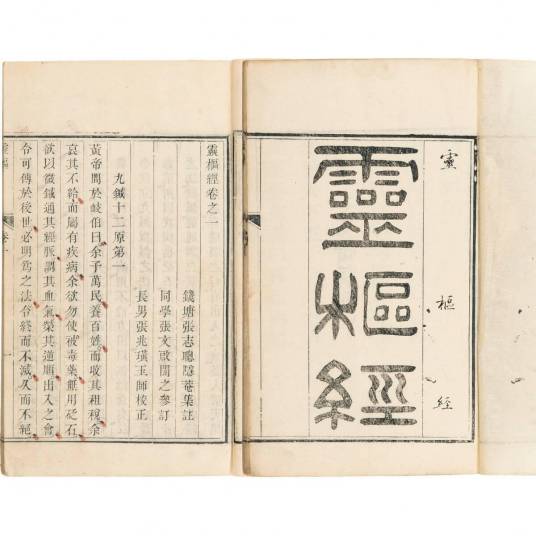 靈樞經
靈樞經
靈樞經卷之一
錢塘張志聰隱菴集註
同學張文啟開之參訂
長男張兆璜玉師校正
九鍼十二原第一
黃帝問於岐伯曰余子萬民養百姓而收其租稅余
哀其不給而屬有疾病余欲勿使被毒藥無用砭石
欲以微鍼通其經脈調其血氣榮其逆順出入之會
令可傳於後世必明爲之法令終而不滅久而不絕